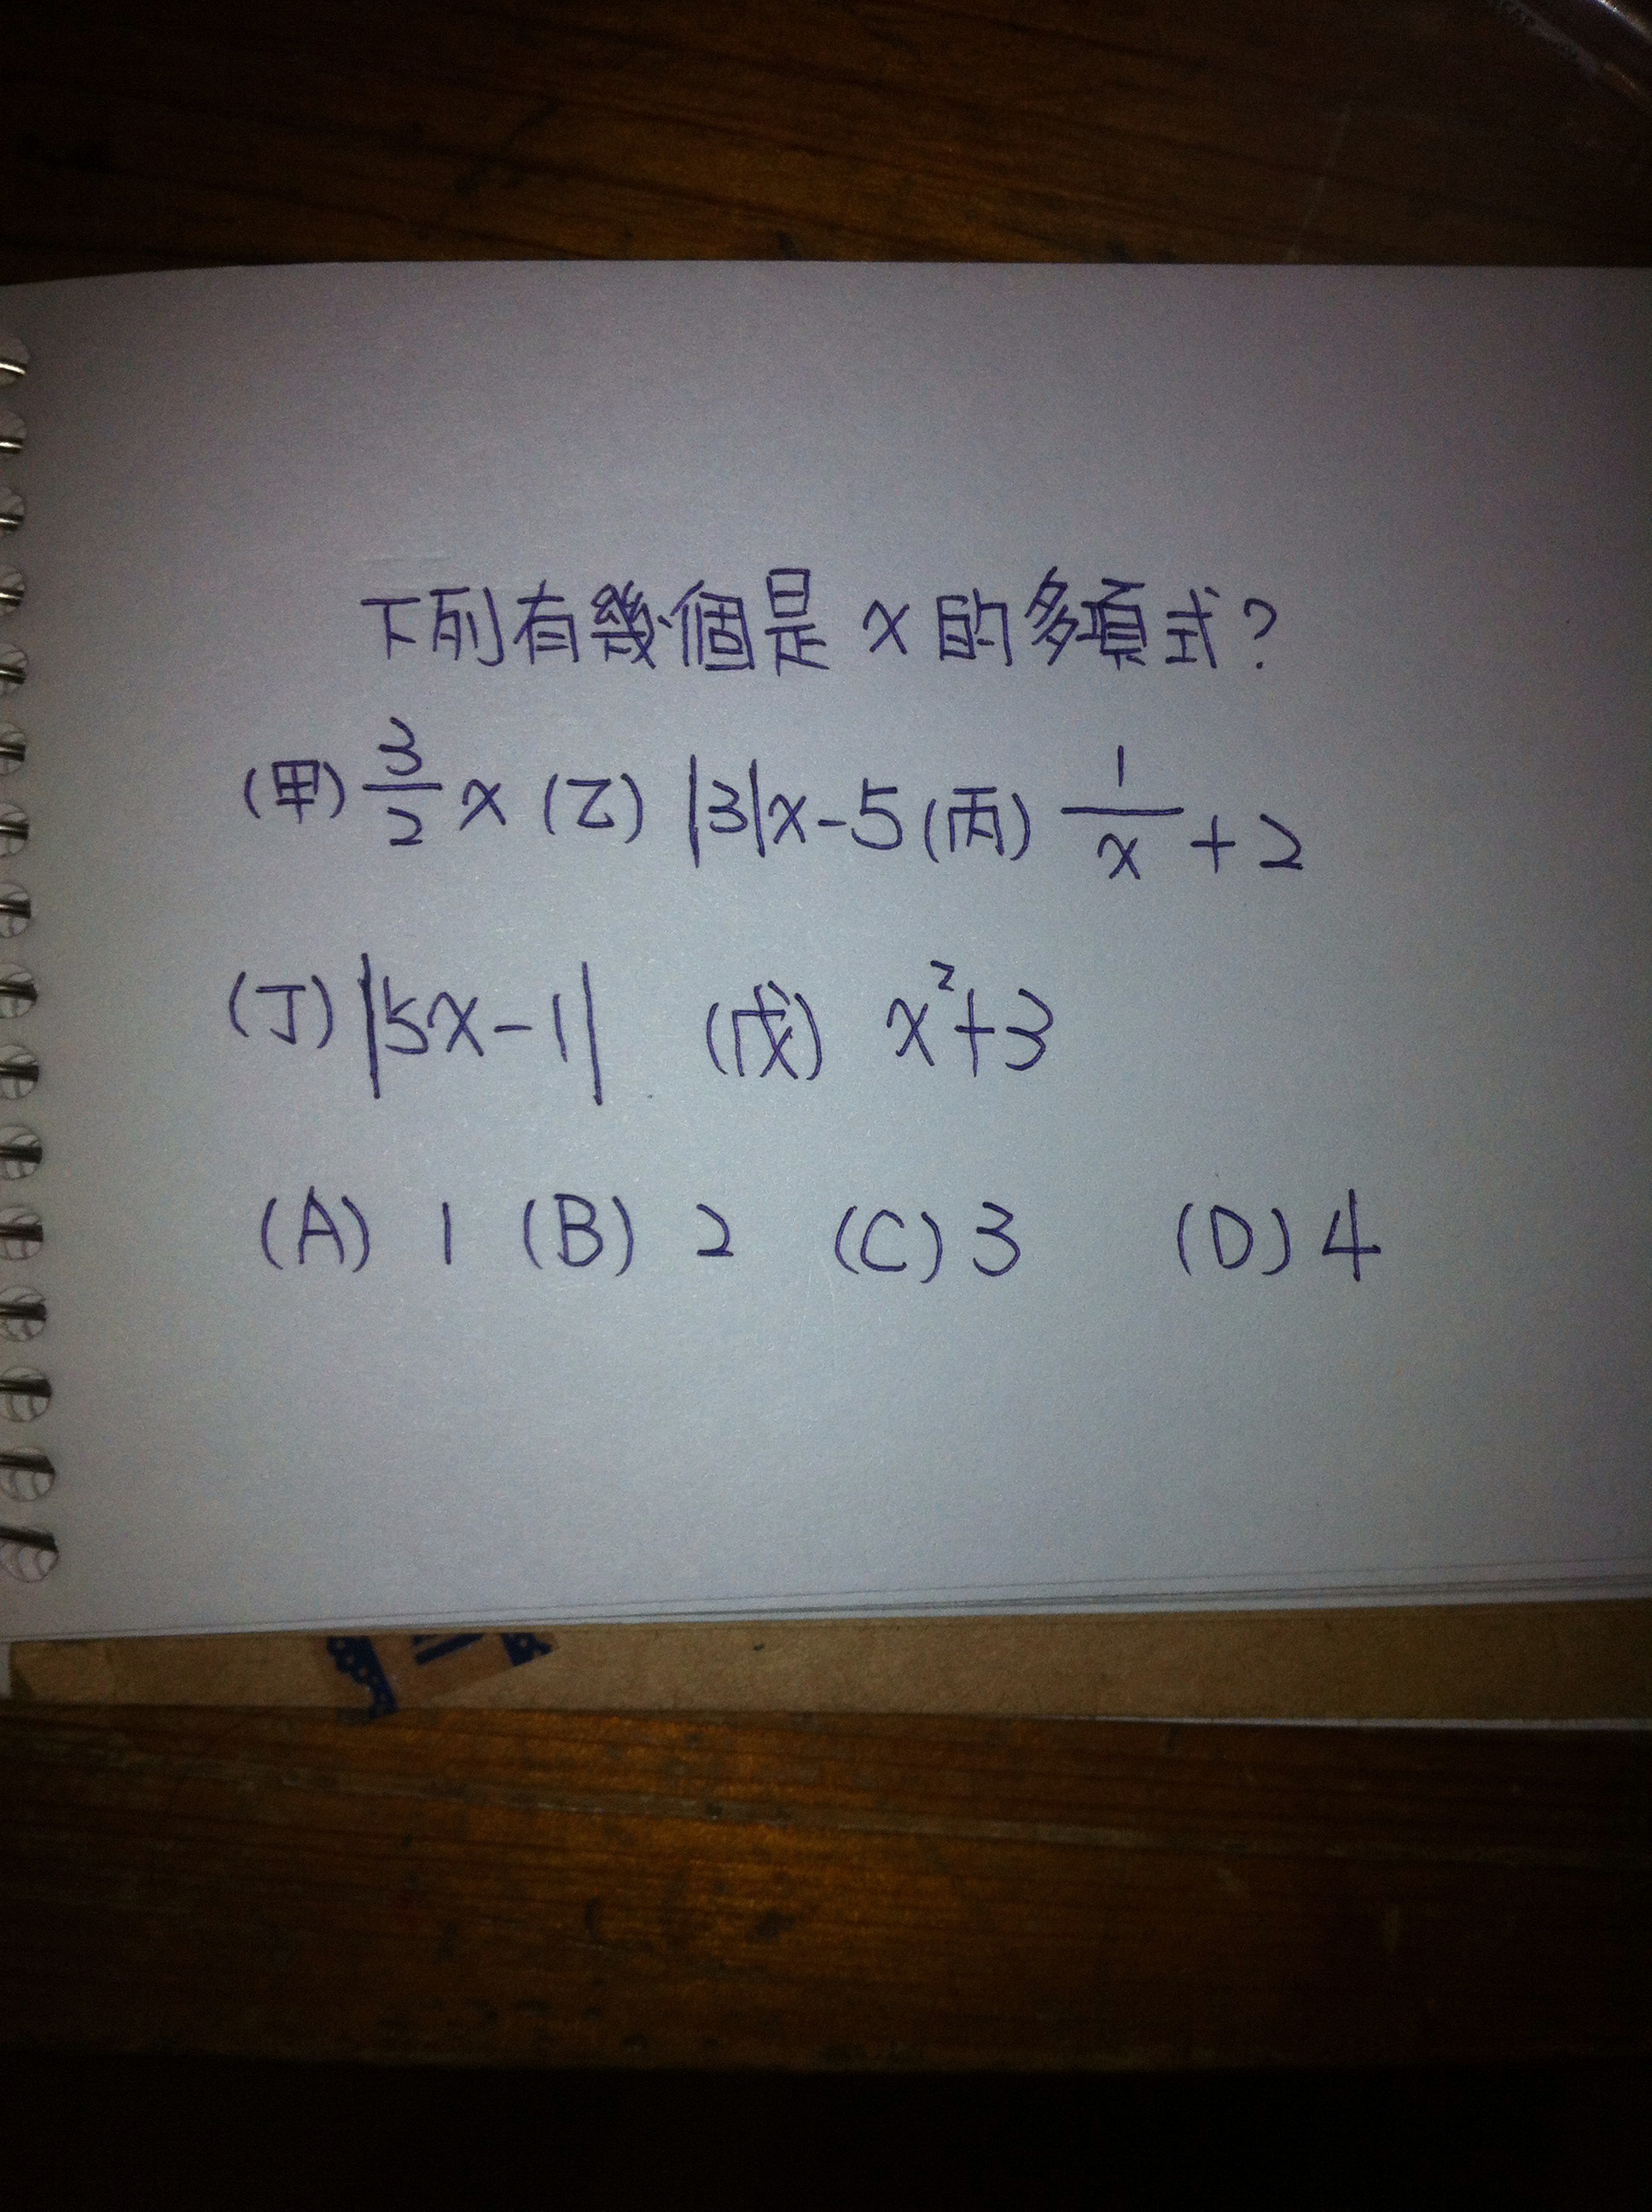 下列有幾個是 x 的多項式?
(甲) 3/2 x (乙) |3|x-5 (丙) 1/x +2
(丁) |5x-1| (戊) x²+3
(A) 1 (B) 2 (C) 3 (D) 4